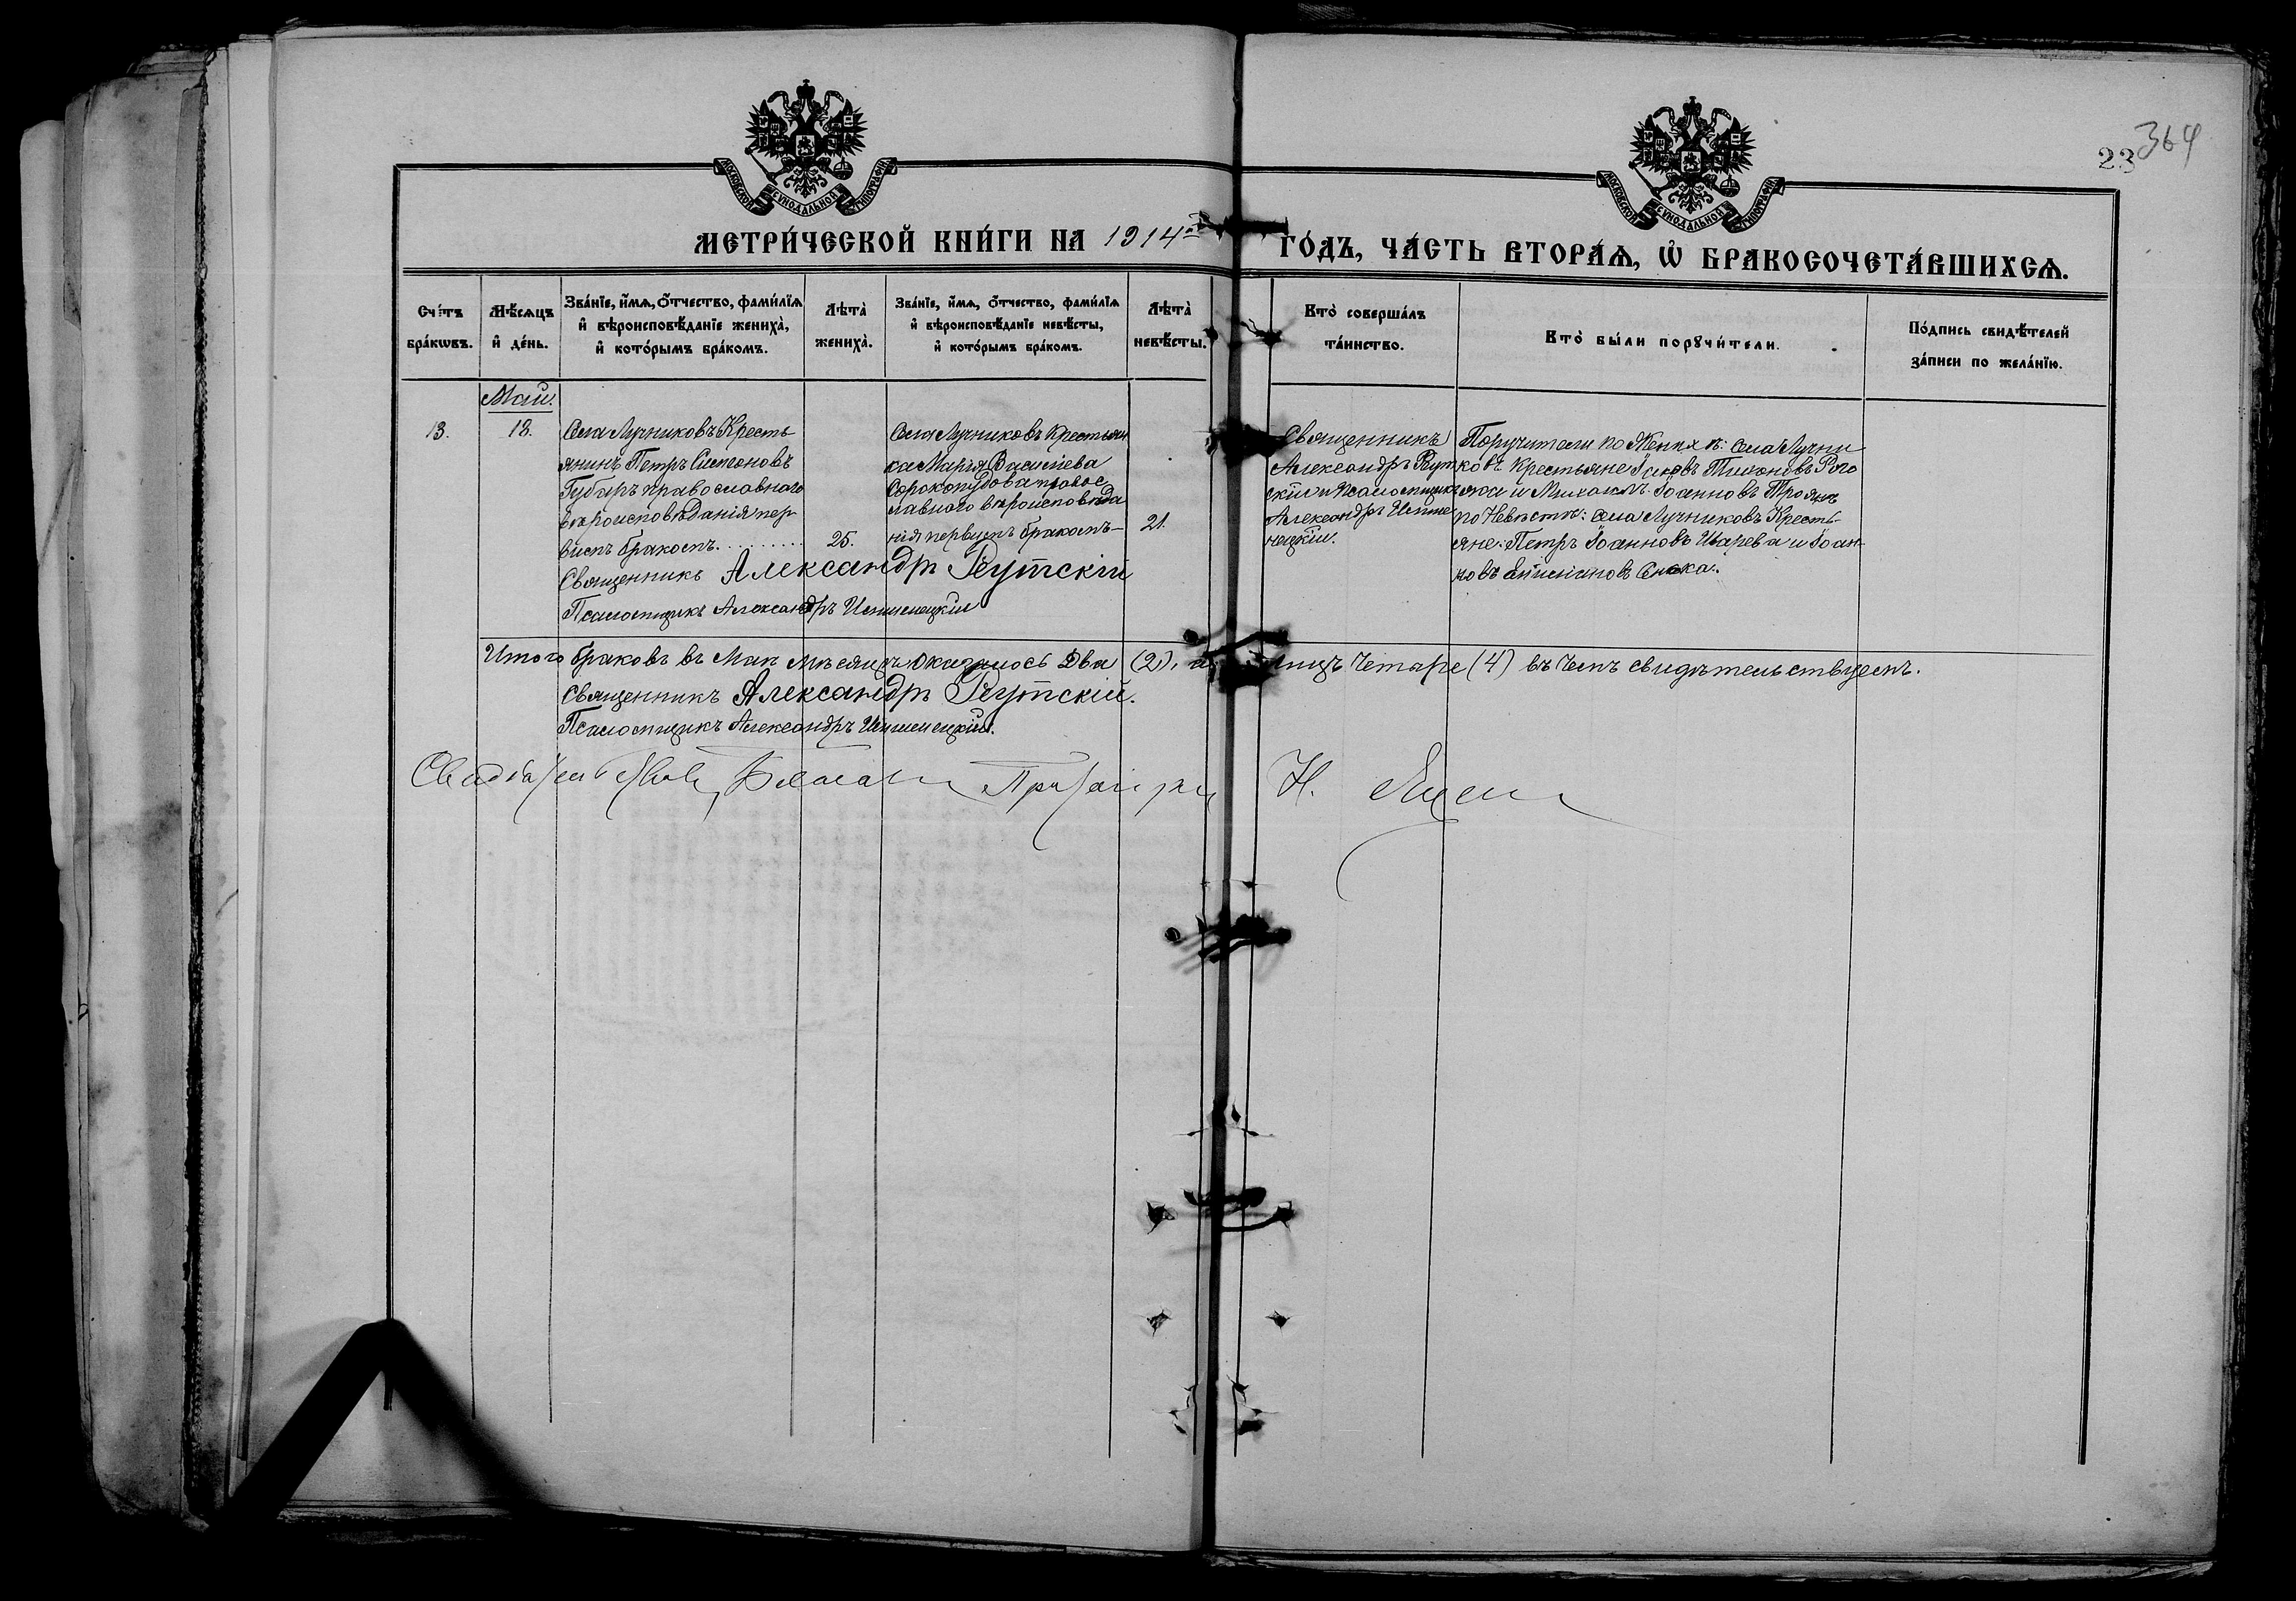 23 364
МОСКОВСКОЙ СѴНОДАЛЬНОЙ ТИПОГРАФІИ
МОСКОВСКОЙ СѴНОДАЛЬНОЙ ТИПОГРАФІИ
МЕТРИ́ЧЕСКОЙ КНИ́ГИ НА 1914й ГО́ДЪ, ЧА́СТЬ ВТОРА́Ѧ, Ѡ҆ БРАКОСОЧЕТА́ВШИХСѦ.
Сче́тъ бра́кѡвъ.
Мѣ́сѧцъ и҆ де́нь.
Зва́нїе, и҆́мѧ, ѻ҆́тчество, фами́лїѧ и҆ вѣроисповѣ́данїе жениха̀, и҆ кото́рымъ бра́комъ.
Лѣта̀ жениха̀.
Зва́нїе, и҆́мѧ, ѻ҆́тчество, фами́лїѧ и҆ вѣроисповѣ́данїе невѣ́сты, и҆ кото́рымъ бра́комъ.
Лѣта̀ невѣ́сты.
Кто̀ соверша́лъ та́инство.
Кто̀ бы́ли порꙋчи́тели.
По́дпись свидѣ́телей за́писи по жела́нїю.
Май.
13.
18.
Села Лучниковъ Кресть
янинъ Петръ Симеоновъ
Губарь православнаго
вѣроисповѣданія пер
вымъ бракомъ..........
25.
Села Лучниковъ Крестьян
ка Марія Васильева
Сорокопудова правос
лавнаго вѣроисповѣда
нія первымъ бракомъ
21.
Священникъ
Александръ Реут
скій и Псаломщикъ
Александръ
Поручители по Женихѣ: Села Лучни
ковъ Крестьяне Іаковъ Тихоновъ Рого
и Михаилъ Іоанновъ Троянъ
по Невѣстѣ: Села Лучниковъ Кресть
яне: Петръ Іоанновъ и Іоан
новъ
Священникъ Александръ Реутскій
Псаломщикъ Александръ
Итого браковъ въ Маѣ мѣсяцѣ оказалось Два (2), а лицъ Четыре (4) въ чемъ свидѣтельствуемъ.
Священникъ Александръ Реутскій.
Псаломщикъ Александръ
Н.